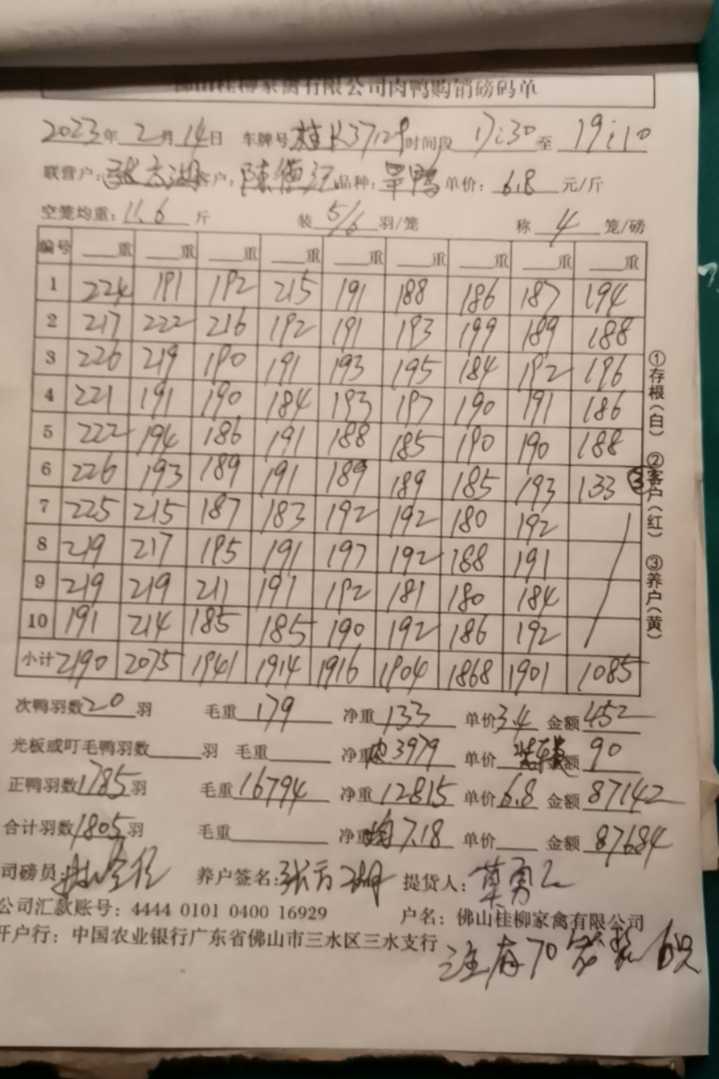 佛山桂柳家禽有限公司肉鸭购销磅码单
2023年 2月 14日 车牌号 桂K37129 时间段 17:30 至 19:10
联营户: 客户: 品种: 旱鸭 单价: 6.8 元/斤
空笼均重: 11.6 斤 装 5/6 羽/笼 称 4 笼/磅
编号 重 重 重 重 重 重 重 重 重
1 224 191 192 215 191 188 186 187 194
2 217 222 216 192 191 193 199 189 188
3 226 219 190 191 193 195 184 192 196
4 221 191 190 184 193 197 190 191 186
5 222 194 186 191 188 185 190 190 188
6 226 193 189 191 189 189 185 193 133
7 225 215 187 183 192 192 180 192
8 219 217 195 191 197 192 188 191
9 219 219 211 191 192 181 180 184
10 191 214 185 185 190 192 186 192
小计 2190 2075 1941 1914 1916 1904 1868 1901 1085
①存根(白) ②客户(红) ③养户(黄)
③
次鸭羽数 20 羽 毛重 179 净重 133 单价 3.4 金额 452
光板或叮毛鸭羽数 羽 毛重 净重 3979 单价 金额 90
正鸭羽数 1785 羽 毛重 16794 净重 12815 单价 6.8 金额 87142
合计羽数 1805 羽 毛重 净重 均 7.18 单价 金额 87684
司磅员: 养户签名: 提货人: 莫勇
公司汇款账号: 4444 0101 0400 16929 户名: 佛山桂柳家禽有限公司
开户行: 中国农业银行广东省佛山市三水区三水支行
注有70笼装6只